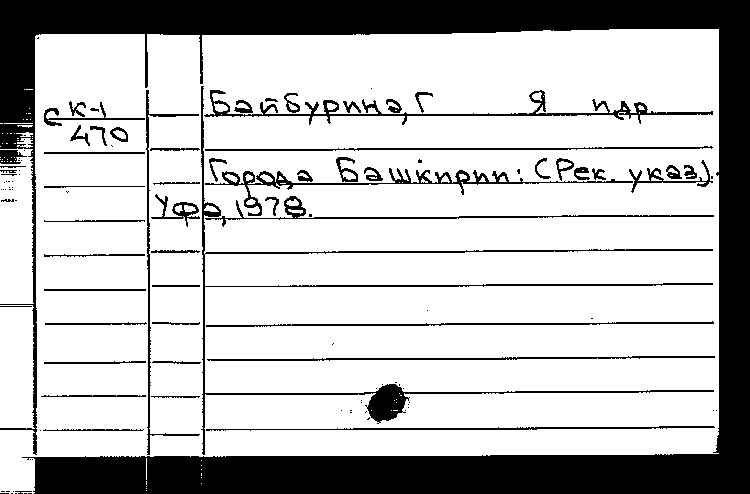 С К-1
470
Байбурина, Г Я и др.
Города Башкирии: (Рек. указ.).
Уфа, 1978.